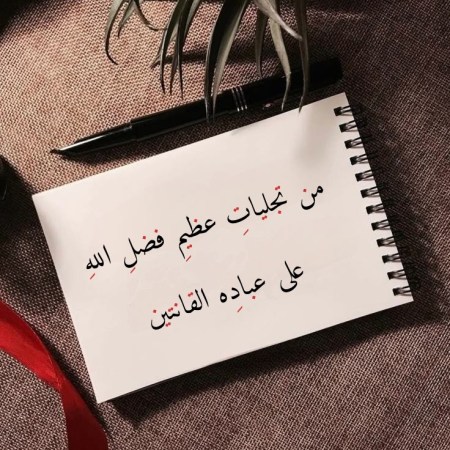 من تجلياتِ عظيمِ فضلِ اللهِ
على عبادِه القانتين